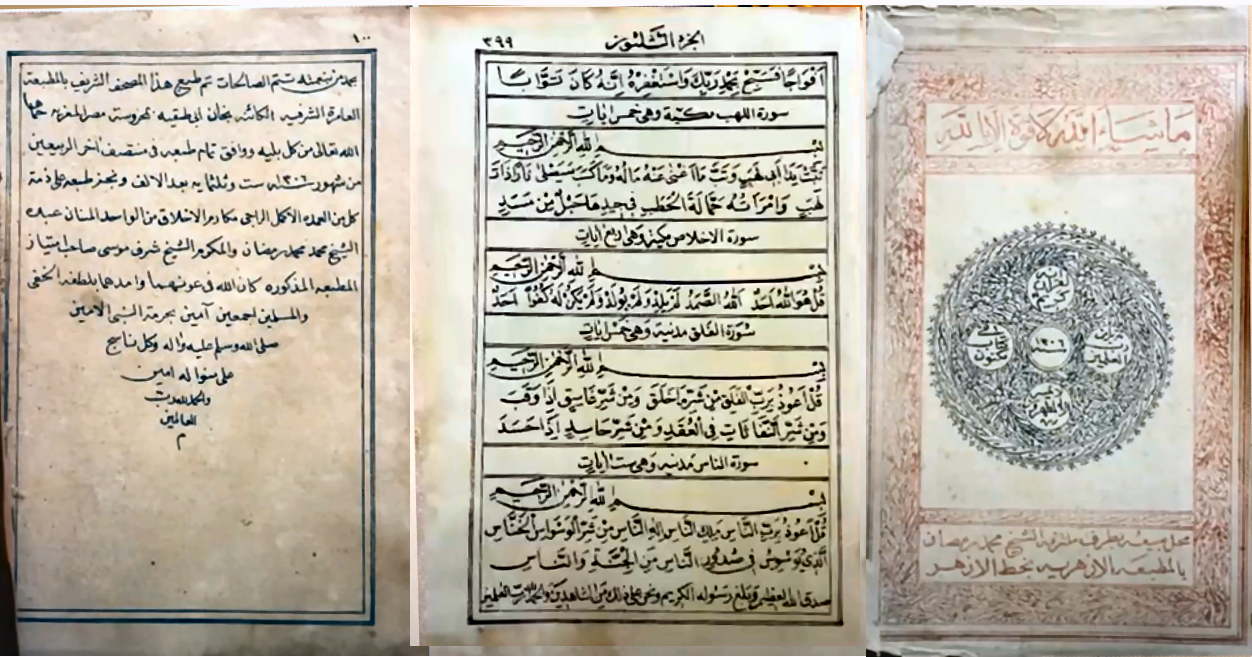 ما شاء الله لا قوة الا بالله
انه لقرآن كريم
في كتاب مكنون
سنة ١٣٠٦
لا يمسه الا المطهرون
تنزيل من رب العالمين
محل مبيعه بطرف ملتزمه الشيخ محمد رمضان
بالمطبعه الازهريه بخط الازهر
الجزء الثلثون ٣٩٩
اَفْوَاجًا فَسَبِّحْ بِحَمْدِ رَبِّكَ وَاسْتَغْفِرْهُ اِنَّهُ كَانَ تَوَّابًا
سورة اللهب مكية وهي خمس ايات
بِسْمِ اللهِ الرَّحْمٰنِ الرَّحِيمِ
تَبَّتْ يَدَا اَبِي لَهَبٍ وَتَبَّ مَا اَغْنٰى عَنْهُ مَالُهُ وَمَا كَسَبَ سَيَصْلٰى نَارًا ذَاتَ
لَهَبٍ وَامْرَاَتُهُ حَمَّالَةَ الْحَطَبِ فِي جِيدِهَا حَبْلٌ مِنْ مَسَدٍ
سورة الاخلاص مكية وهي اربع ايات
بِسْمِ اللهِ الرَّحْمٰنِ الرَّحِيمِ
قُلْ هُوَ اللهُ اَحَدٌ اَللهُ الصَّمَدُ لَمْ يَلِدْ وَلَمْ يُولَدْ وَلَمْ يَكُنْ لَهُ كُفُوًا اَحَدٌ
سورة الفلق مدنية وهي خمس ايات
بِسْمِ اللهِ الرَّحْمٰنِ الرَّحِيمِ
قُلْ اَعُوذُ بِرَبِّ الْفَلَقِ مِنْ شَرِّ مَا خَلَقَ وَمِنْ شَرِّ غَاسِقٍ اِذَا وَقَبَ
وَمِنْ شَرِّ النَّفَّاثَاتِ فِي الْعُقَدِ وَمِنْ شَرِّ حَاسِدٍ اِذَا حَسَدَ
سورة الناس مدنيه وهي ست ايات
بِسْمِ اللهِ الرَّحْمٰنِ الرَّحِيمِ
قُلْ اَعُوذُ بِرَبِّ النَّاسِ مَلِكِ النَّاسِ اِلٰهِ النَّاسِ مِنْ شَرِّ الْوَسْوَاسِ الْخَنَّاسِ
الَّذِي يُوَسْوِسُ فِي صُدُورِ النَّاسِ مِنَ الْجِنَّةِ وَالنَّاسِ
صدق الله العظيم وبلغ رسوله الكريم ونحن على ذلك من الشاهدين والحمد لله رب العالمين
١٠٠
بحمد من بنعمته تتم الصالحات تم طبع هذا المصحف الشريف بالمطبعة
العامرة الشرفيه الكائنه بخان ابوطقيه بمحروسة مصر المعزيه حماها
الله تعالى من كل بليه ووافق تمام طبعه في منتصف آخر الربيعين
من شهور ١٣٠٦ سنه ست وثلثمايه بعد الالف ونجز طبعه على ذمة
كل من العمده الاكمل الراجي مكارم الاخلاق من الواحد المنان عبده
الشيخ محمد محمد رمضان والمكرم الشيخ شرف موسى صاحب امتياز
المطبعه المذكوره كان الله في عونهما وامدهما بلطفه الخفي
والمسلمين اجمعين آمين بحرمة النبي الامين
صلى الله وسلم عليه واله وكل ناسج
على منواله امين
والحمد لله رب
العالمين
م